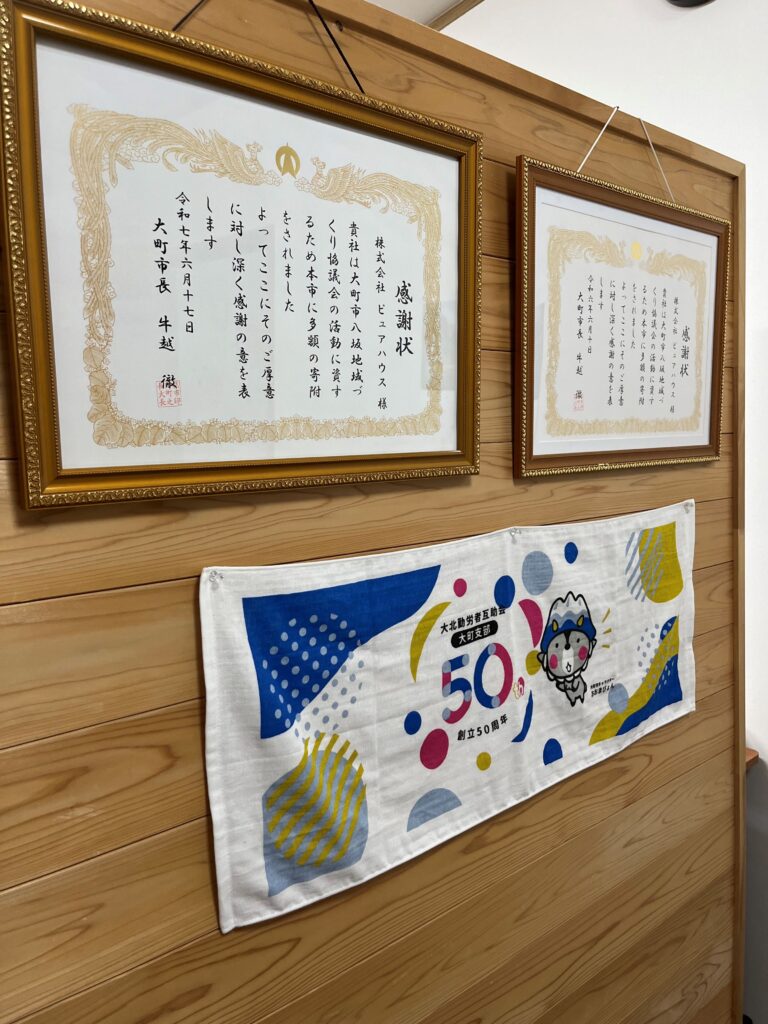 感謝状
株式会社 ピュアハウス 様
貴社は大町市八坂地域づ
くり協議会の活動に資す
るため本市に多額の寄附
をされました
よってここにそのご厚意
に対し深く感謝の意を表
します
令和七年六月十七日
大町市長 牛越 徹
感謝状
株式会社 ピュアハウス 様
貴社は大町市八坂地域づ
くり協議会の活動に資す
るため本市に多額の寄附
をされました
よってここにそのご厚意
に対し深く感謝の意を表
します
令和六年六月十日
大町市長 牛越 徹
大北勤労者互助会
大町支部
50
創立50周年
おおまぴょん